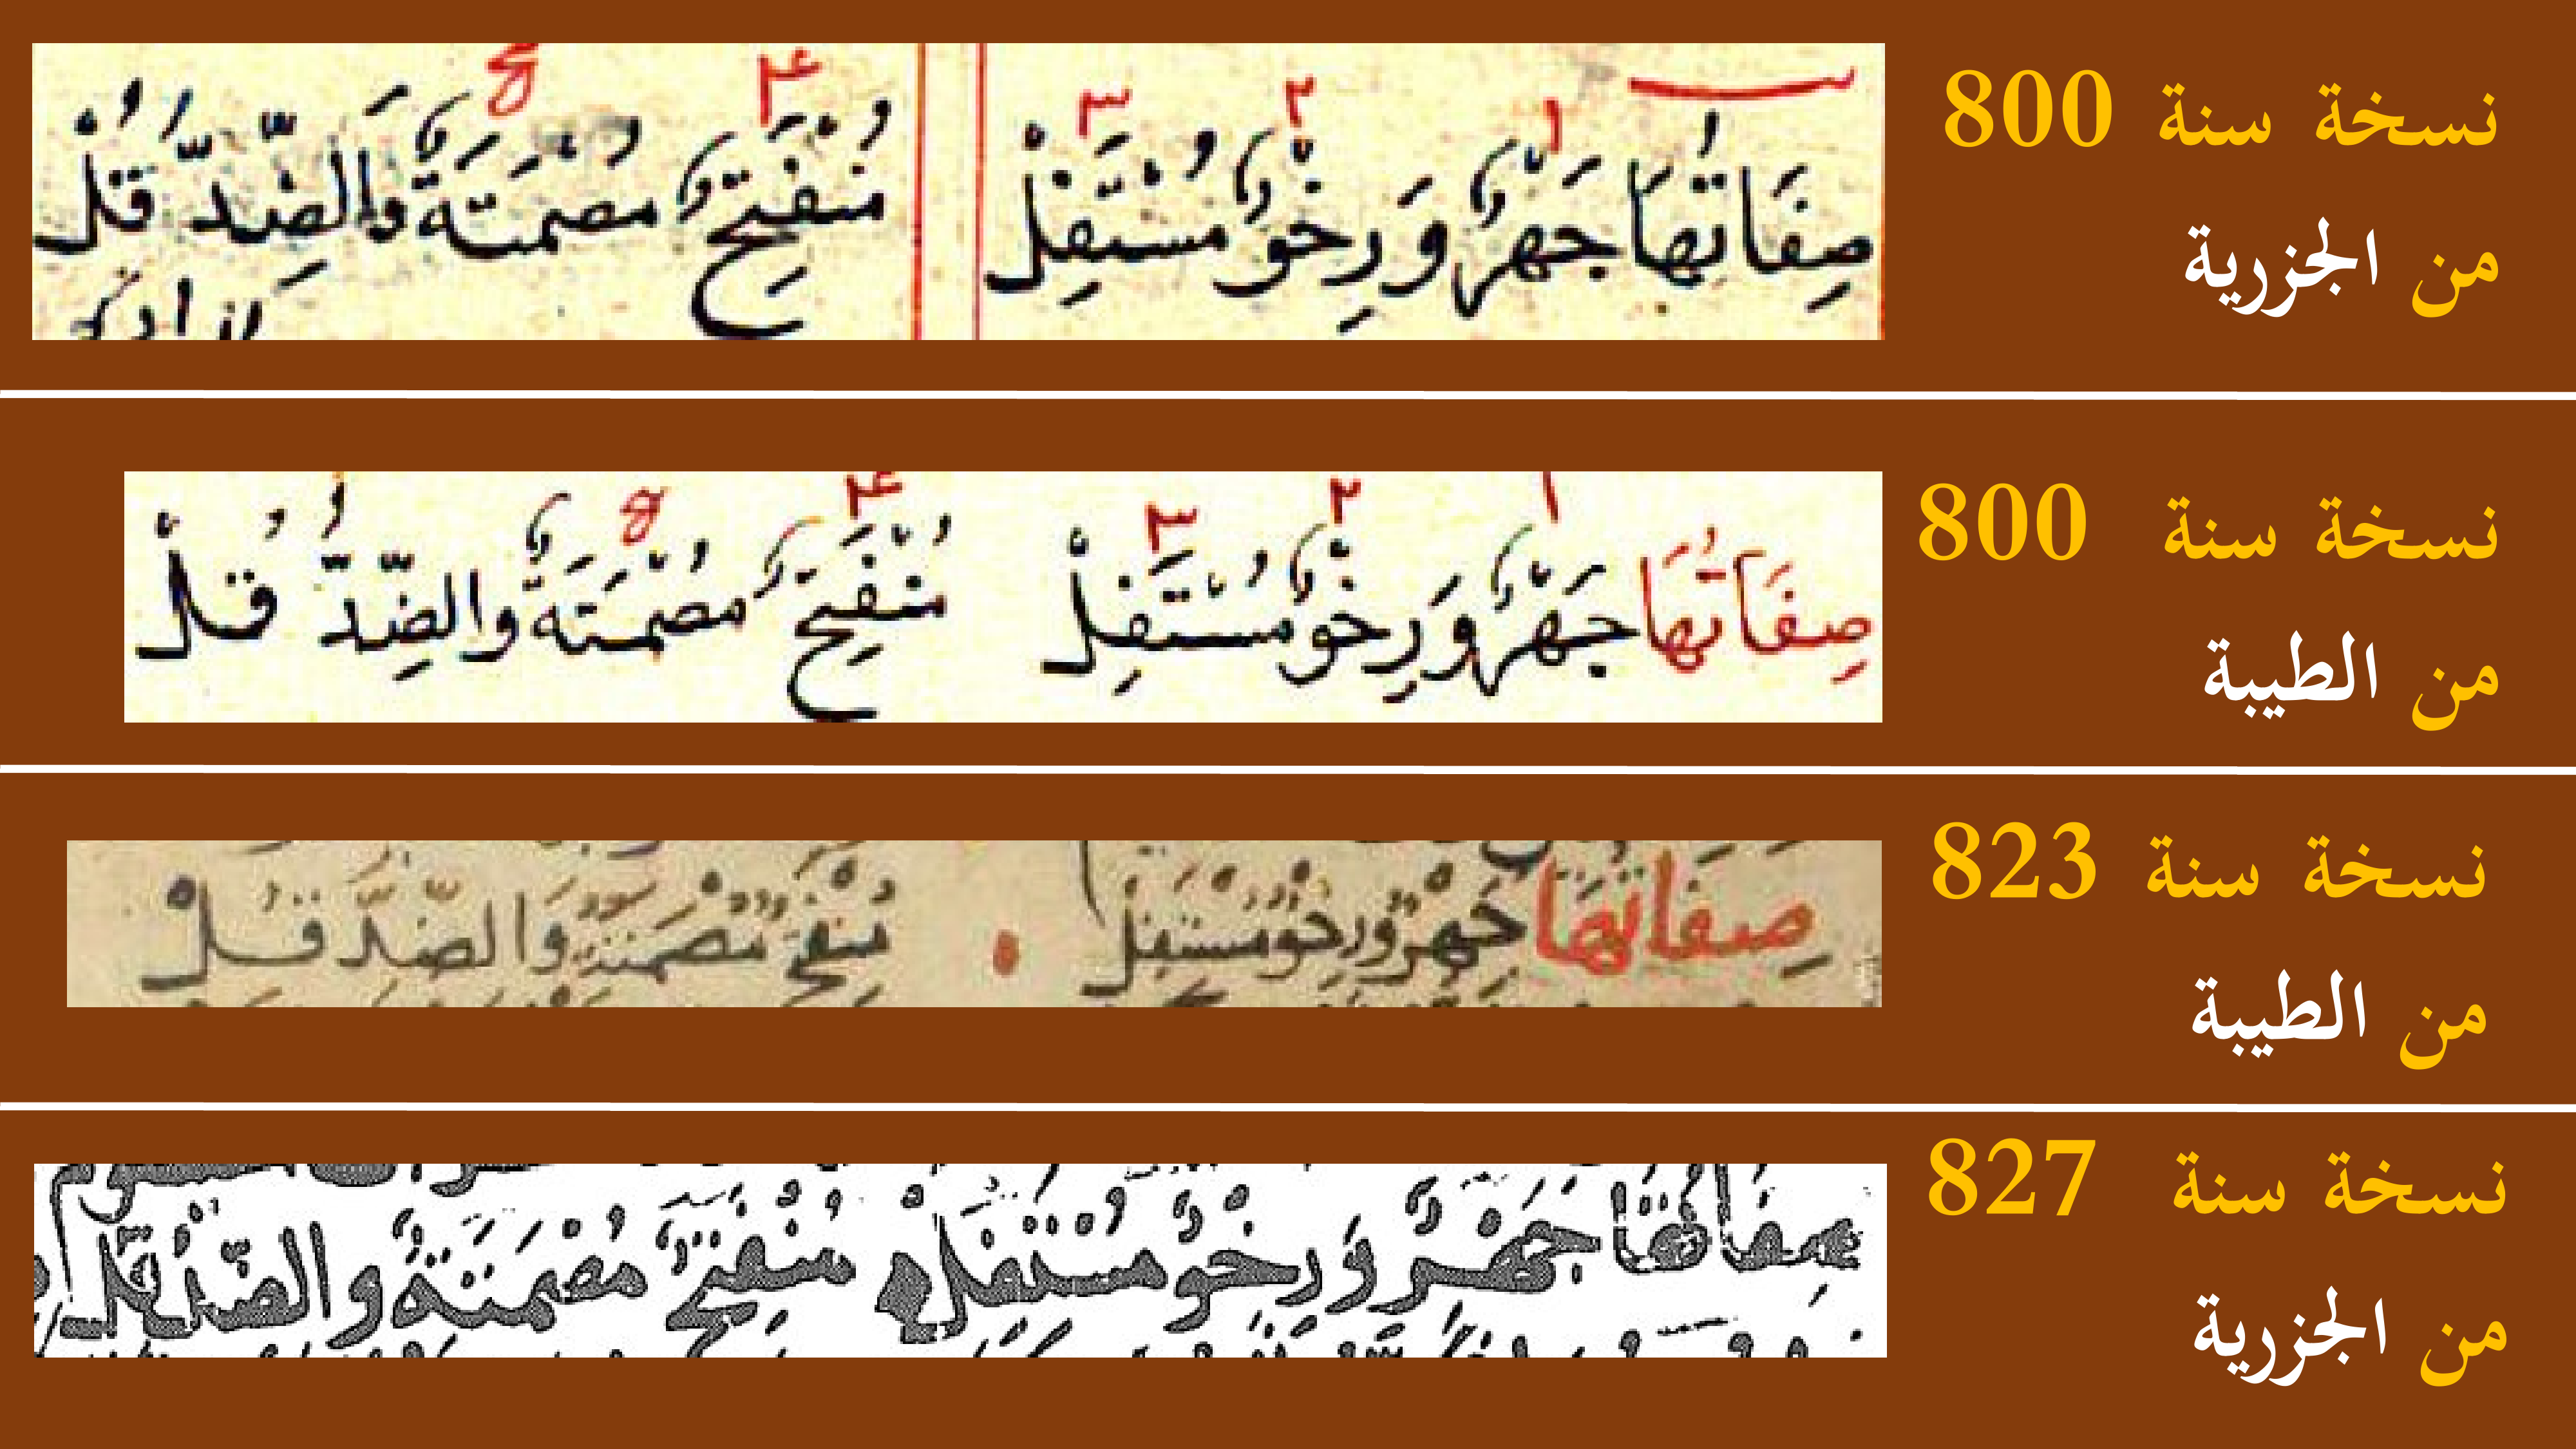 نسخة سنة 800
من الجزرية
صِفَاتُهَا جَهْرٌ وَرِخْوٌ مُسْتَفِلْ مُنْفَتِحٌ مُصْمَتَةٌ وَالضِّدَّ قُلْ
١ ٢ ٣ ۴ ۵
نسخة سنة 800
من الطيبة
صِفَاتُهَا جَهْرٌ وَرِخْوٌ مُسْتَفِلْ مُنْفَتِحٌ مُصْمَتَةٌ والضِّدُّ قُلْ
١ ٢ ٣ ۴ ۵
نسخة سنة 823
من الطيبة
صِفَاتُهَا جَهْرٌ وَرِخْوٌ مُسْتَفِلْ مُنْفَتِحٌ مُصْمَتَةٌ وَالضِّدَّ قُلْ
نسخة سنة 827
من الجزرية
صِفَاتُهَا جَهْرٌ وَرِخْوٌ مُسْتَفِلْ مُنْفَتِحٌ مُصْمَتَةٌ والضِّدَّ قُلْ